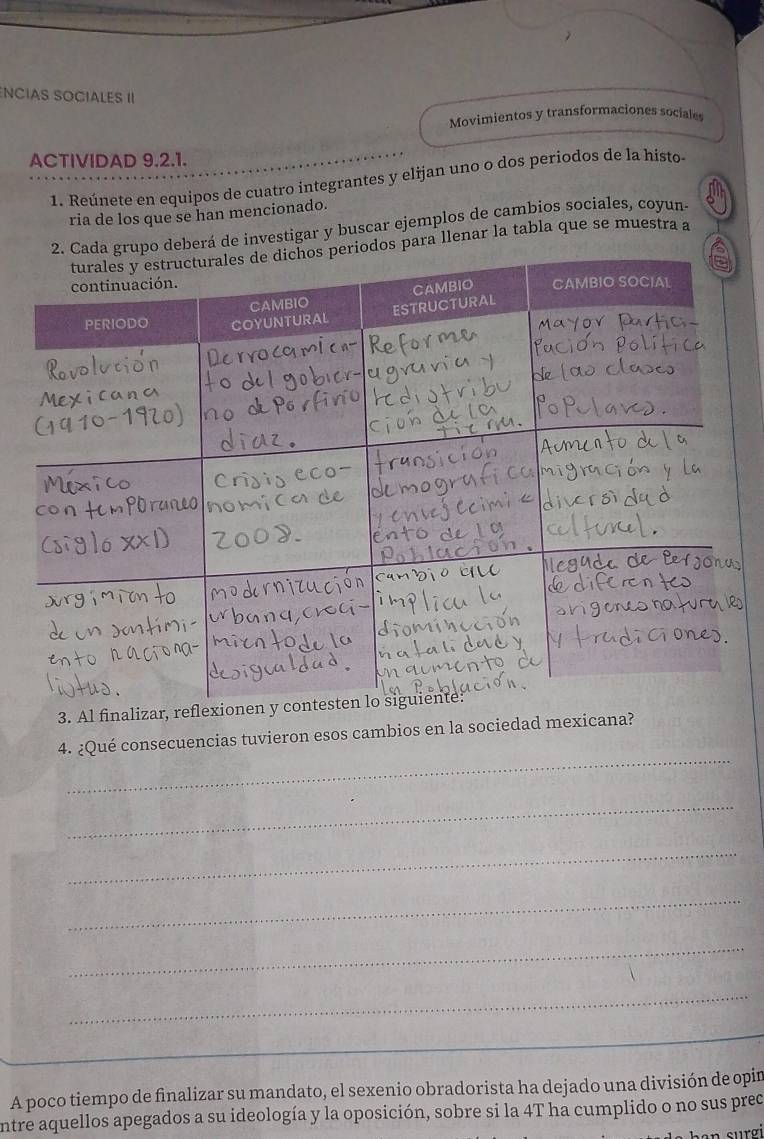 ENCIAS SOCIALES II
Movimientos y transformaciones sociales
ACTIVIDAD 9.2.1.
1. Reúnete en equipos de cuatro integrantes y elijan uno o dos periodos de la histo-
ria de los que se han mencionado.
2. Cada grupo deberá de investigar y buscar ejemplos de cambios sociales, coyun-
turales y estructurales de dichos periodos para llenar la tabla que se muestra a
continuación.
PERIODO
CAMBIO
COYUNTURAL
CAMBIO
ESTRUCTURAL
CAMBIO SOCIAL
Revolución
Mexicana
(1910-1920)
Derrocamien-
to del gobier-
no de Porfirio
diaz.
Reforma
agraria y
redistribu
ción de la
tierra.
Mayor Partici-
Pación Política
de las clases
Populares.
México
contemporaneo
(siglo XXI)
Crisis eco-
nomica de
2008.
transición
demografica
y envejecimi
ento de la
Población.
Aumento de la
migración y la
diversidad
cultural.
surgimiento
de un santimi-
ento naciona-
listas.
modernización
urbana, creci-
miento de la
desigualdad.
cambio que
implica la
diominución
natalidad y
un aumento de
la Población.
llegada de Personas
de diferentes
origenes naturales
y tradiciones.
3. Al finalizar, reflexionen y contesten lo siguiente:
4. ¿Qué consecuencias tuvieron esos cambios en la sociedad mexicana?
A poco tiempo de finalizar su mandato, el sexenio obradorista ha dejado una división de opin
ntre aquellos apegados a su ideología y la oposición, sobre si la 4T ha cumplido o no sus prec
han surgi